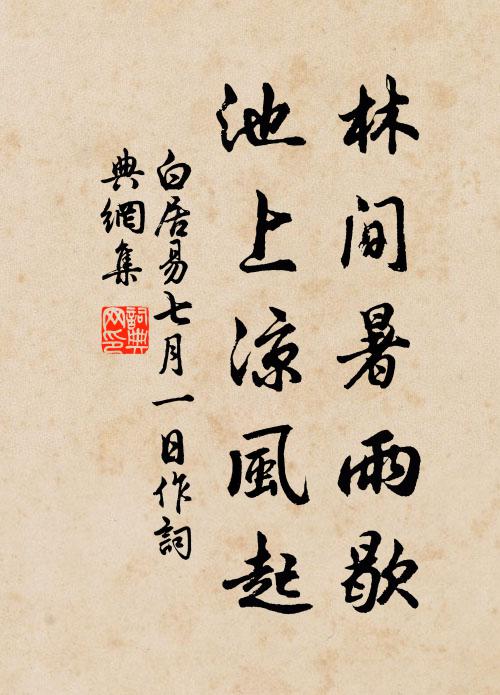 林間暑雨歇
池上涼風起
白居易七月一日作詞
典網集
詞典
网印